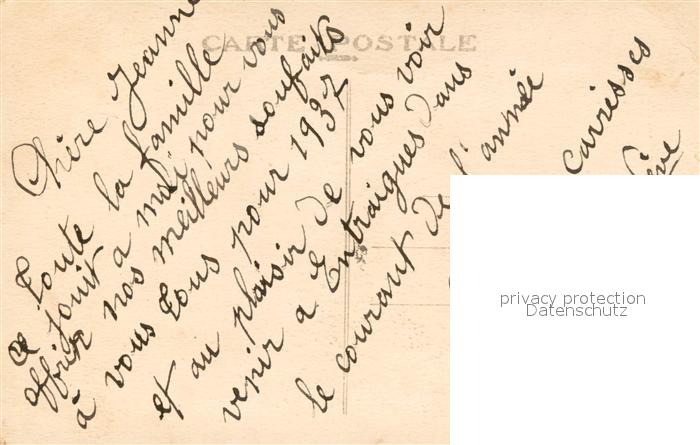 CARTE POSTALE
Chère Jeanne
Toute la famille
se joint a moi pour vous
offrir nos meilleurs souhaits
à vous tous pour 1937
et au plaisir de vous voir
venir a Entraigues dans
le courant de l'année
caresses
privacy protection
Datenschutz